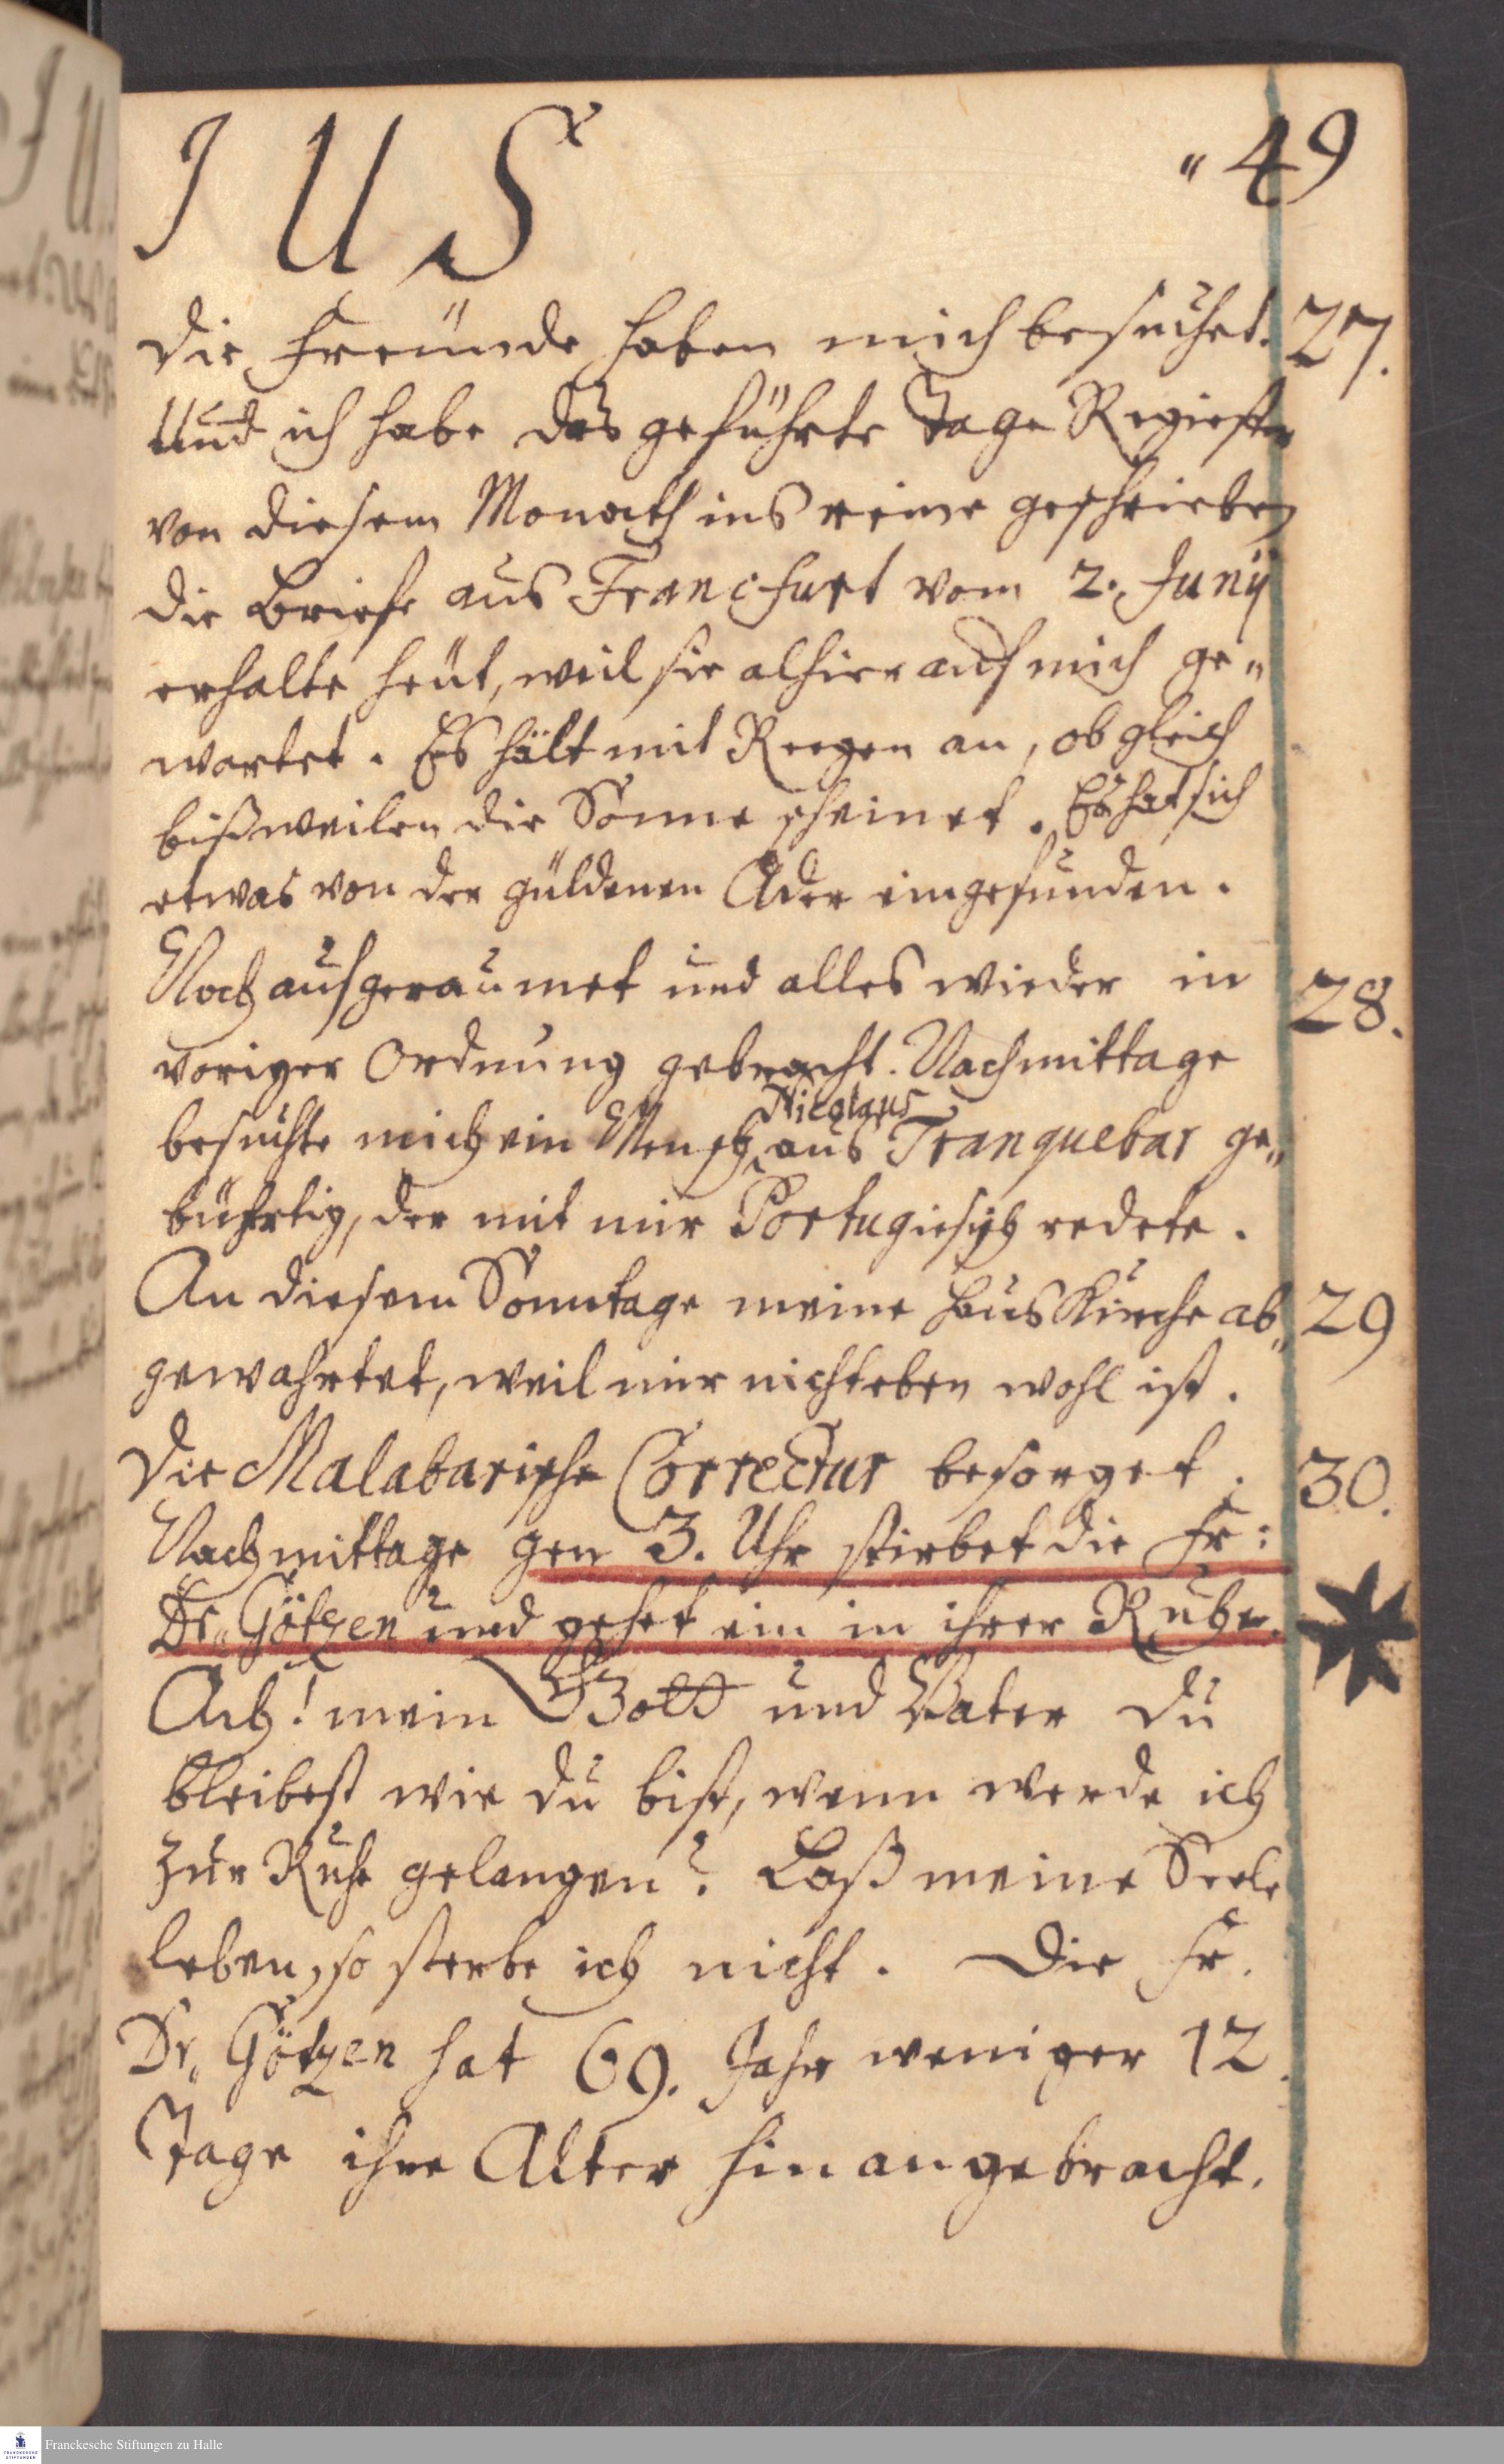 I U S
„ 49
Die Freunde haben mich besuchet. 27.
Und ich habe das geführte Tage Register
von diesem Monath ins reine geschrieben
die Briefe aus Francfurt vom 2. Junij
erhalte heut, weil sie alhier auf mich ge„
wartet. Es hält mit Reegen an, ob gleich
bißweilen die Sonne scheinet. Es hat sich
etwas von der güldenen Ader eingefunden.
Noch aufgeraumet und alles wieder in 28.
voriger Ordnung gebracht. Nachmittage
Nicolaus
besuchte mich ein Mensch aus Tranquebar ge„
bührtig, der mit mir Portugiesisch redete.
An diesem Sonntage meine HausKirche ab„ 29
gewahrtet, weil mir nicht eben wohl ist.
Die Malabarische Correctur besorget. 30.
Nachmittage gen 3. Uhr stirbet die Fr:
Dr. Götzen und gehet ein in ihrer Ruhe.
Ach! mein Gott und Vater du
bleibest wie du bist, wenn werde ich
zur Ruhe gelangen? Laß meine Seele
leben, so sterbe ich nicht. Die Fr.
Dr. Götzen hat 69. Jahr weniger 12.
Tage ihre Alter hinangebracht.
FRANCKESCHE STIFTUNGEN
Franckesche Stiftungen zu Halle